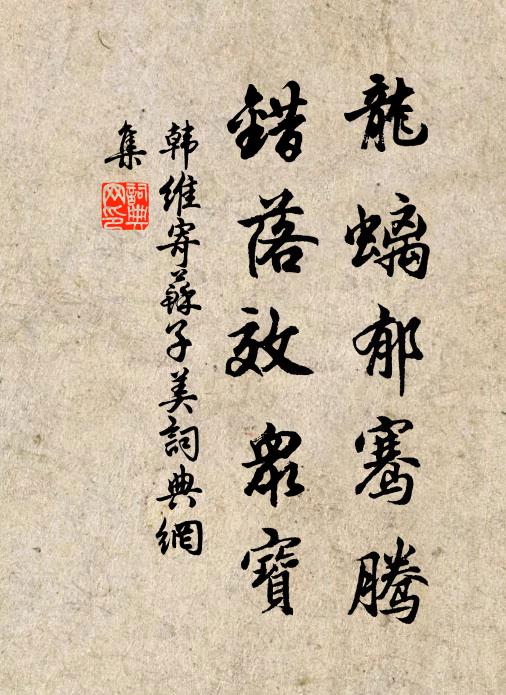 龍螭郁騫騰
錯落效眾寶
韩維寄蘇子美詞典網
集
詞典網印